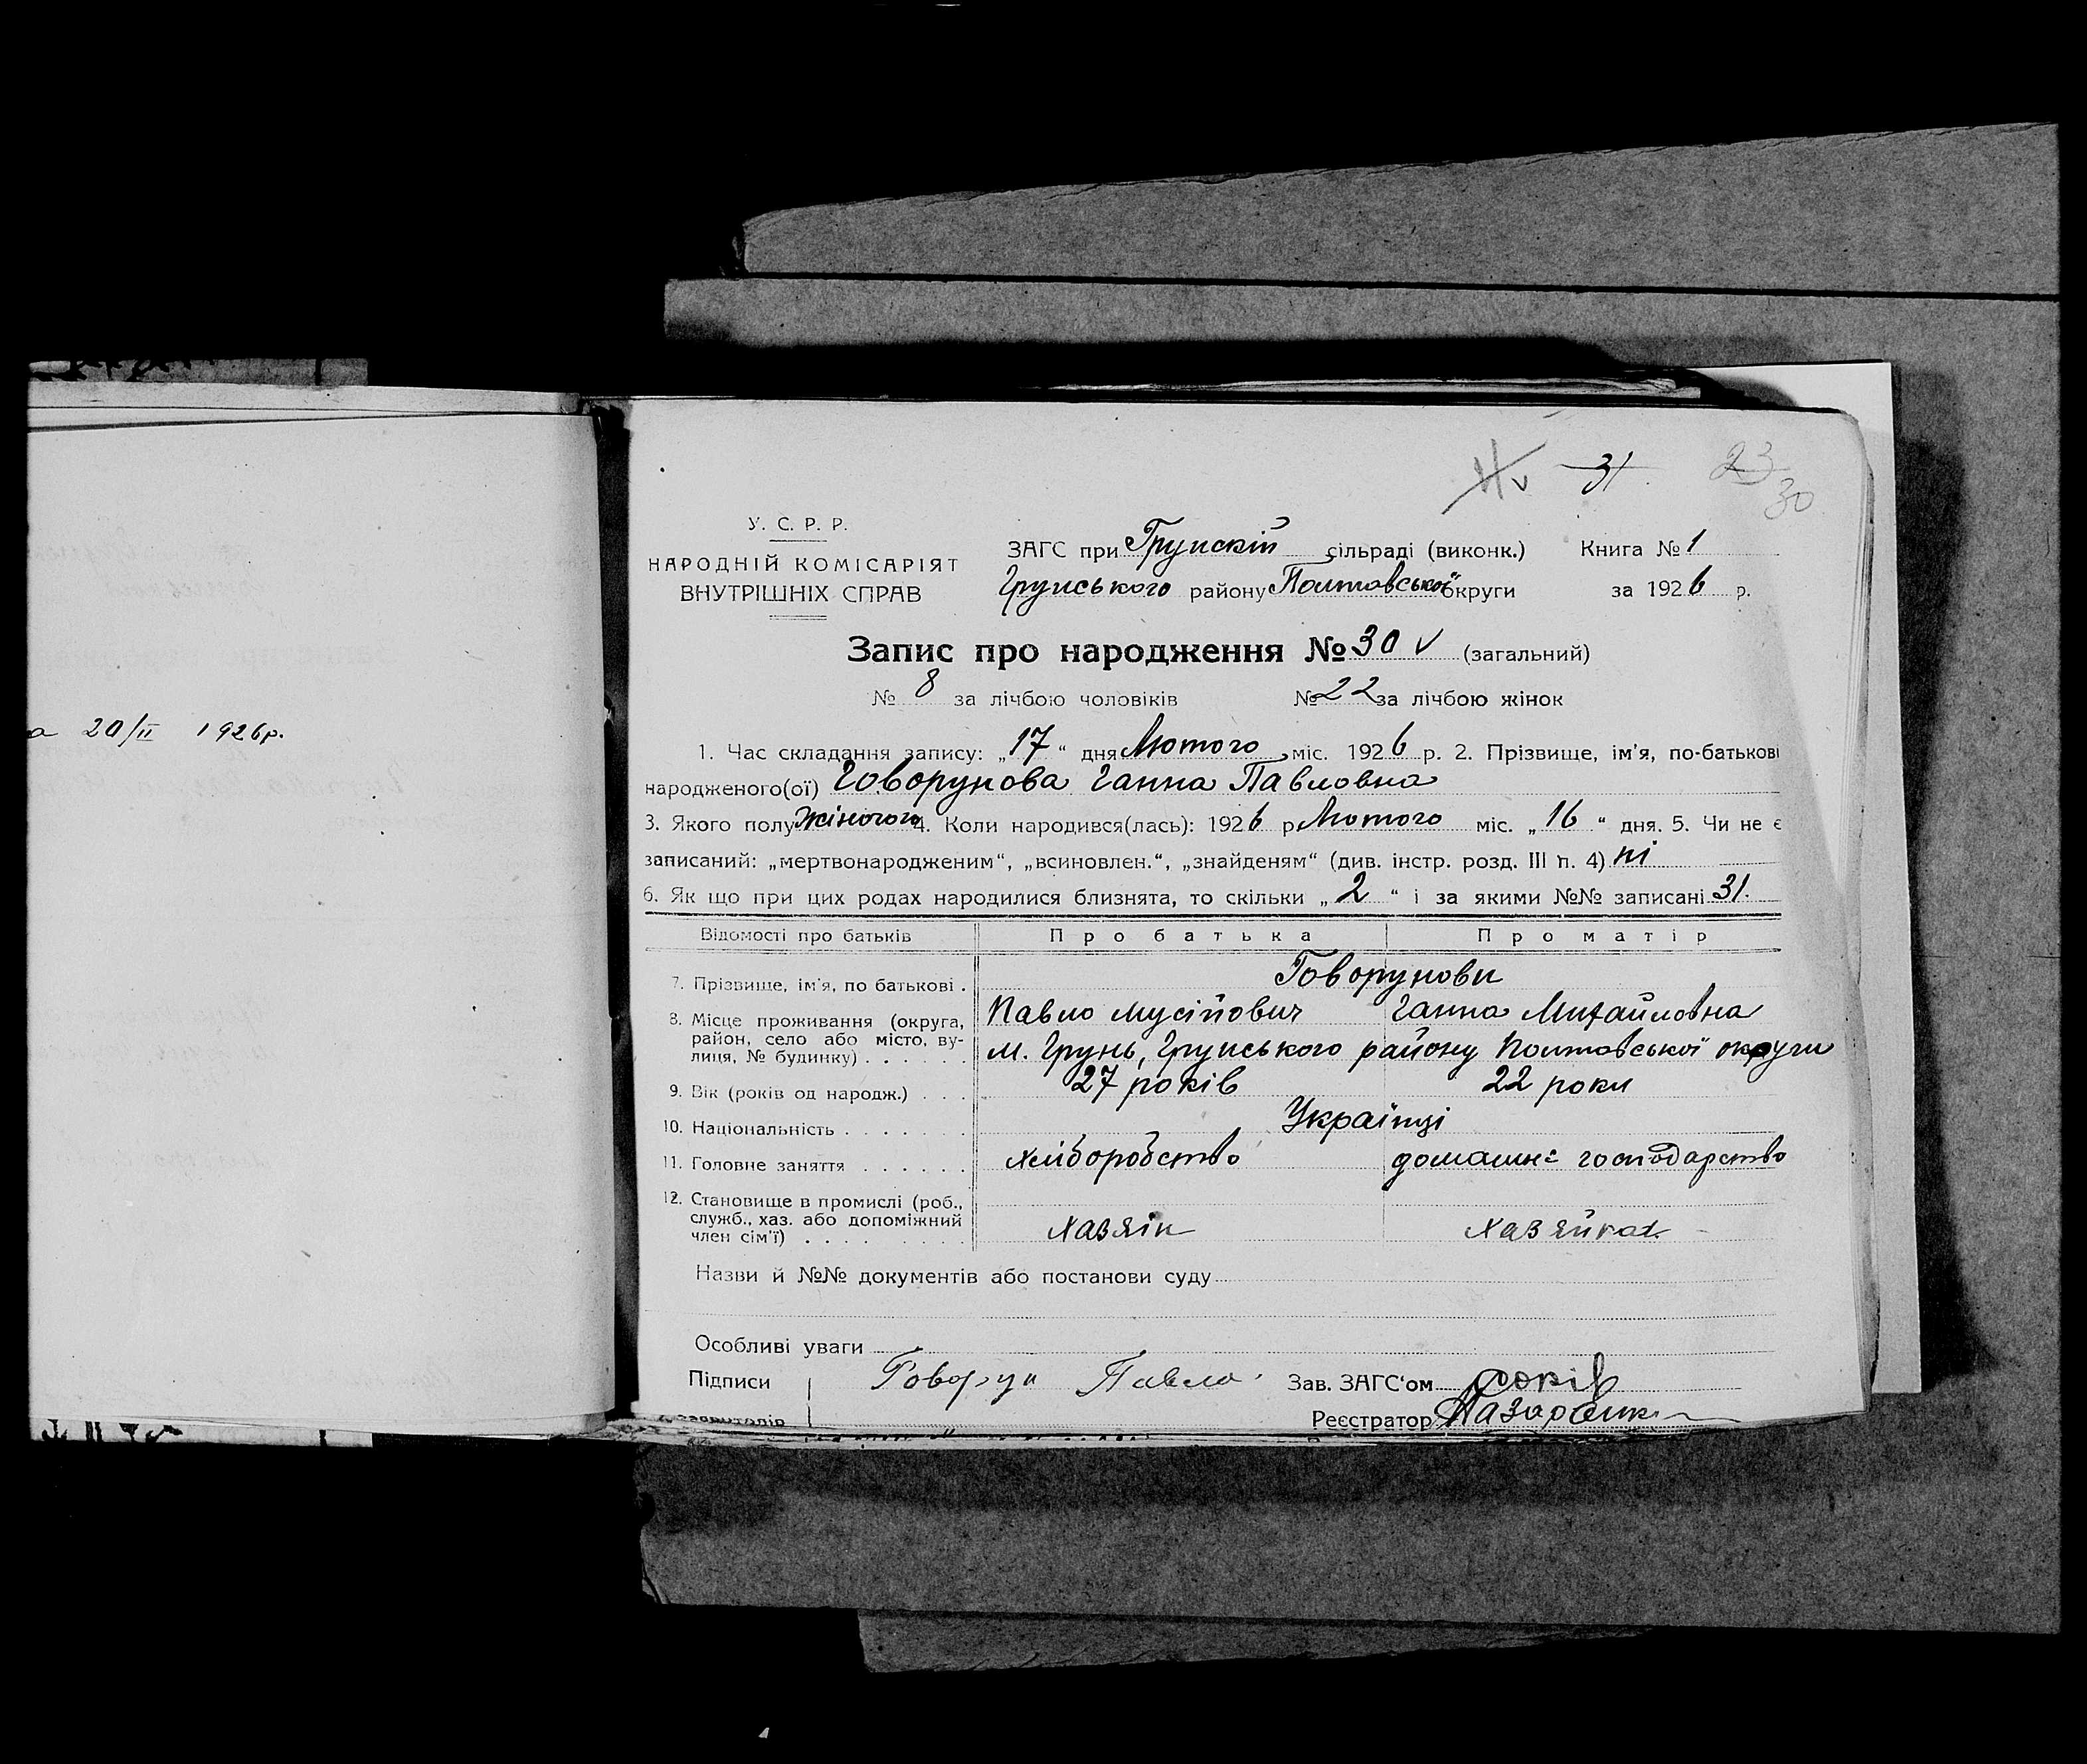 а 20/II 1926р.
31
23
30
У. С. Р. Р.
НАРОДНІЙ КОМІСАРІЯТ
ВНУТРІШНІХ СПРАВ
ЗАГС при Грунскій сільраді (виконк.) Книга № 1
Грунського району Полтовської округи за 1926 р.
Запис про народження № 30 v (загальний)
№ 8 за лічбою чоловіків № 22 за лічбою жінок
1. Час складання запису: „17“ дня Лютого міс. 1926 р. 2. Прізвище, ім'я, по-батькові
народженого(ої) Говорунова Ганна Павловна
3. Якого полу Жіночого 4. Коли народився(лась): 1926 р Лютого міс. „16“ дня. 5. Чи не є
записаний: „мертвонародженим“, „всиновлен.“, „знайденям“ (див. інстр. розд. III п. 4) ні
6. Як що при цих родах народилися близнята, то скільки „2“ і за якими №№ записані 31.
Відомості про батьків Про батька Про матір
7. Прізвище, ім'я, по батькові . Говорунови
Павло Мусійович Ганна Михайловна
8. Місце проживання (округа,
район, село або місто, ву-
лиця, № будинку) . . . . . м. Грунь, Грунського району Полтовської округи
9. Вік (років од народж.) . . . 27 років 22 роки
10. Національність . . . . . . . Українці
11. Головне заняття . . . . . . хліборобство домашнє господарство
12. Становище в промислі (роб.,
служб., хаз. або допоміжний
член сім'ї) . . . . . . . . . хазяін хазяйка
Назви й №№ документів або постанови суду
Особливі уваги
Підписи Говорун Павло Зав. ЗАГС'ом
Реєстратор Назаренк